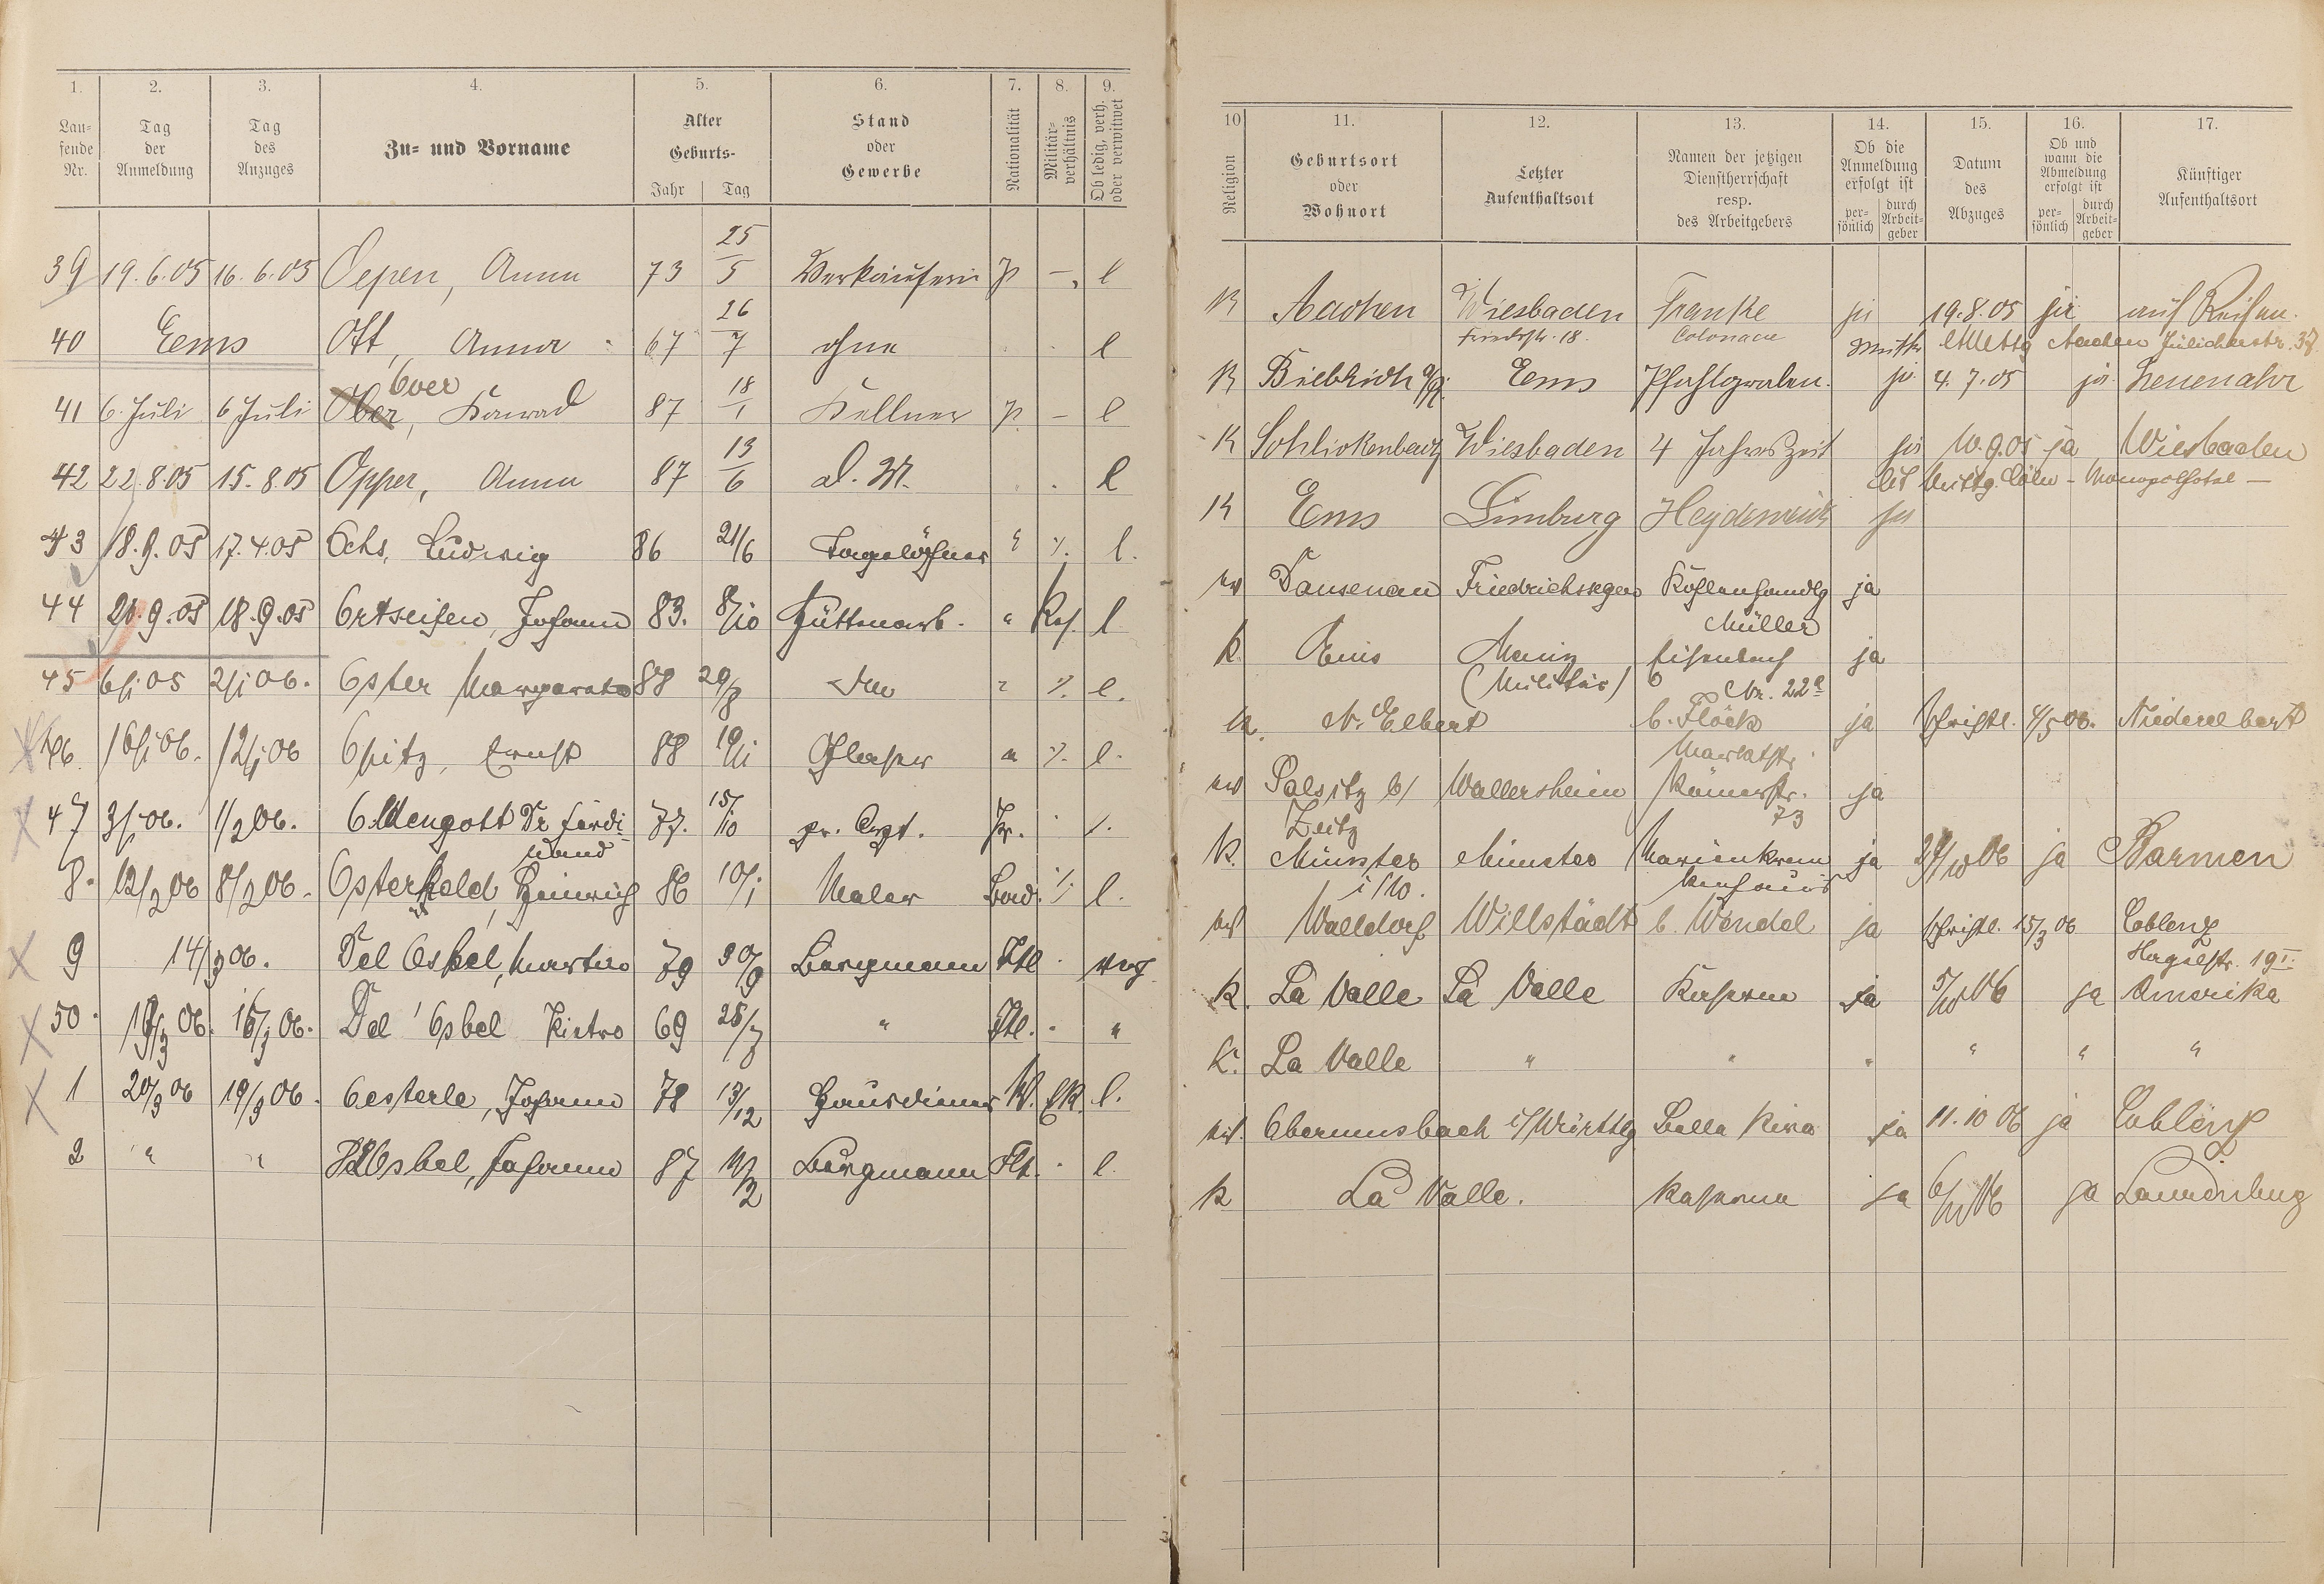 1. 2. 3. 4. 5. 6. 7. 8. 9.
Lau-
fende
Nr.
Tag
der
Anmeldung
Tag
des
Anzuges
Zu- und Vorname
Alter
Geburts-
Jahr Tag
Stand
oder
Gewerbe
Nationalität
Militär-
verhältnis
Ob ledig, verh.
oder verwitwet
39 19.6.05 16.6.05 Oepen, Anna 73 25/5 Verkäuferin P — l
40 Eems Ott, Anna 67 26/7 ohne l
Over
41 6. Juli 6 Juli Ober, Konrad 87 18/1 Kellner P. — l
42 22.8.05 15.8.05 Opper, Anna 87 13/6 D. M. l
43 18.9.05 17.4.05 Ochs, Ludwig 86 21/6 Tagelöhner " ./. l.
44 20.9.05 18.9.05 Ortseifen, Johann 83. 8/10 Hüttenarb. " Res. l
45 6/1 05 2/1 06. Oster Margareta 88 29/8 " ./. l.
46 16/1 06. 12/1 06 Opitz, Ernst 88 10/1 Glaser " ./. l.
47 3/ 06. 1/2 06. Oldengott Dr Ferdi-
nand
77. 15/10 pr. Arzt. Pr. l.
8. 12/2 06 8/2 06. Osterheld, Heinrich 86 10/1 Maler ./. l.
9 14/3 06. Del Osbel, Martino 79 30/9 Bergmann Itl
50. 19/3 06. 16/3 06. Del Osbel Pietro 69 28/7 " Itl. "
1 20/3 06 19/3 06. Oesterle, Johann 78 13/12 Hausdiener W. l.
2 " " Del Osbel, Johann 87 Bergmann Itl. l.
10 11. 12. 13. 14. 15. 16. 17.
Religion
Geburtsort
oder
Wohnort
Letzter
Aufenthaltsort
Namen der jetzigen
Dienstherrschaft
resp.
des Arbeitgebers
Ob die
Anmeldung
erfolgt ist
per-
sönlich
durch
Arbeit-
geber
Datum
des
Abzuges
Ob und
wann die
Abmeldung
erfolgt ist
per-
sönlich
durch
Arbeit-
geber
Künftiger
Aufenthaltsort
K Aachen Wiesbaden Franke ja 19.8.05 ja auf Reisen.
Friedrstr. 18. Colonade Aachen Jülicherstr.
K Biebrich a/Rh. Ems Pfahlgraben. ja 4.7.05 ja Neuenahr
K Schlickenbach Wiesbaden 4 Jahres Zeit ja 10.9.05 ja Wiesbaden
Lt Mittg. Cöln – Monopolhotel –
K Ems Limburg ja
ev Dausenau Friedrichssegen Kohlenhandlg ja
Müller
K. Ems Mainz Eisenbach ja
(Militär) Nr. 22a
K. N. Elbert b. Flöck ja schriftl. 4/5 06. Niederelbert
Marktstr.
ev Salsitz b/ Wallersheim Römerstr. ja
Zeitz 73
K. Münster Münster Marienkran ja ja Barmen
i/W. kenhaus
ev Walldorf Willstädt b. Wendel ja schriftl. 15/3 06 Coblenz
K. La Valle La Valle Kaserne ja 5/10 06 ja Amerika
K. La Valle " " " " " "
ev. Obermusbach i/Württbg Bella Riva ja 11.10 06 ja Coblenz
K La Valle. Kaserne ja ja Laurenburg